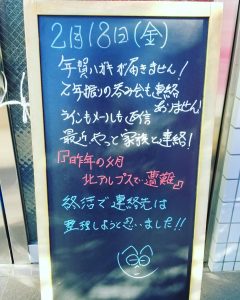 2月18日(金)
年賀ハガキが届きません!
2年振りの呑み会も連絡
ありません!
ラインもメールも返信
最近やっと家族と連絡!
『昨年の夕月
北アルプスで遭難』
終活で連絡先は
整理しようと思いました!!